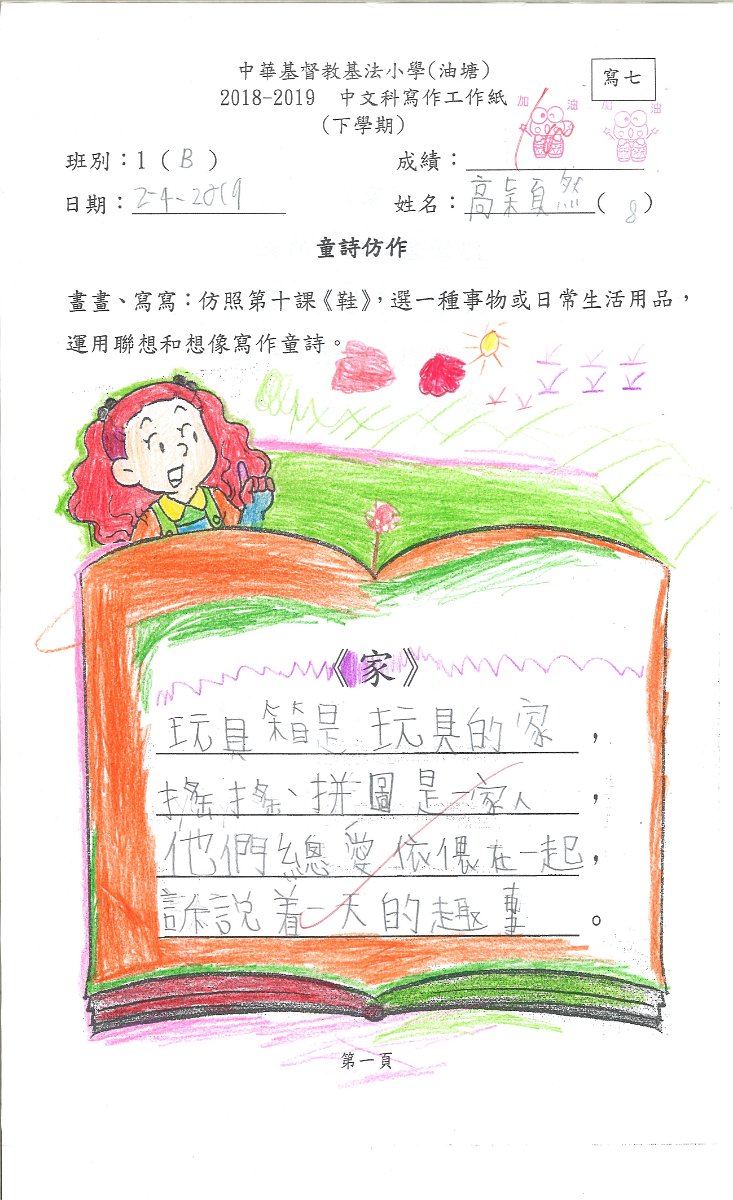 中華基督教基法小學(油塘)
寫七
2018-2019 中文科寫作工作紙
(下學期)
加 油
加 油
班別：1 ( B )
成績：
日期：2-4-2019
姓名：高穎然( 8 )
童詩仿作
畫畫、寫寫：仿照第十課《鞋》，選一種事物或日常生活用品，
運用聯想和想像寫作童詩。
《家》
玩具箱是玩具的家，
搖搖、拼圖是一家人，
他們總愛依偎在一起，
訴說着一天的趣事。
第一頁